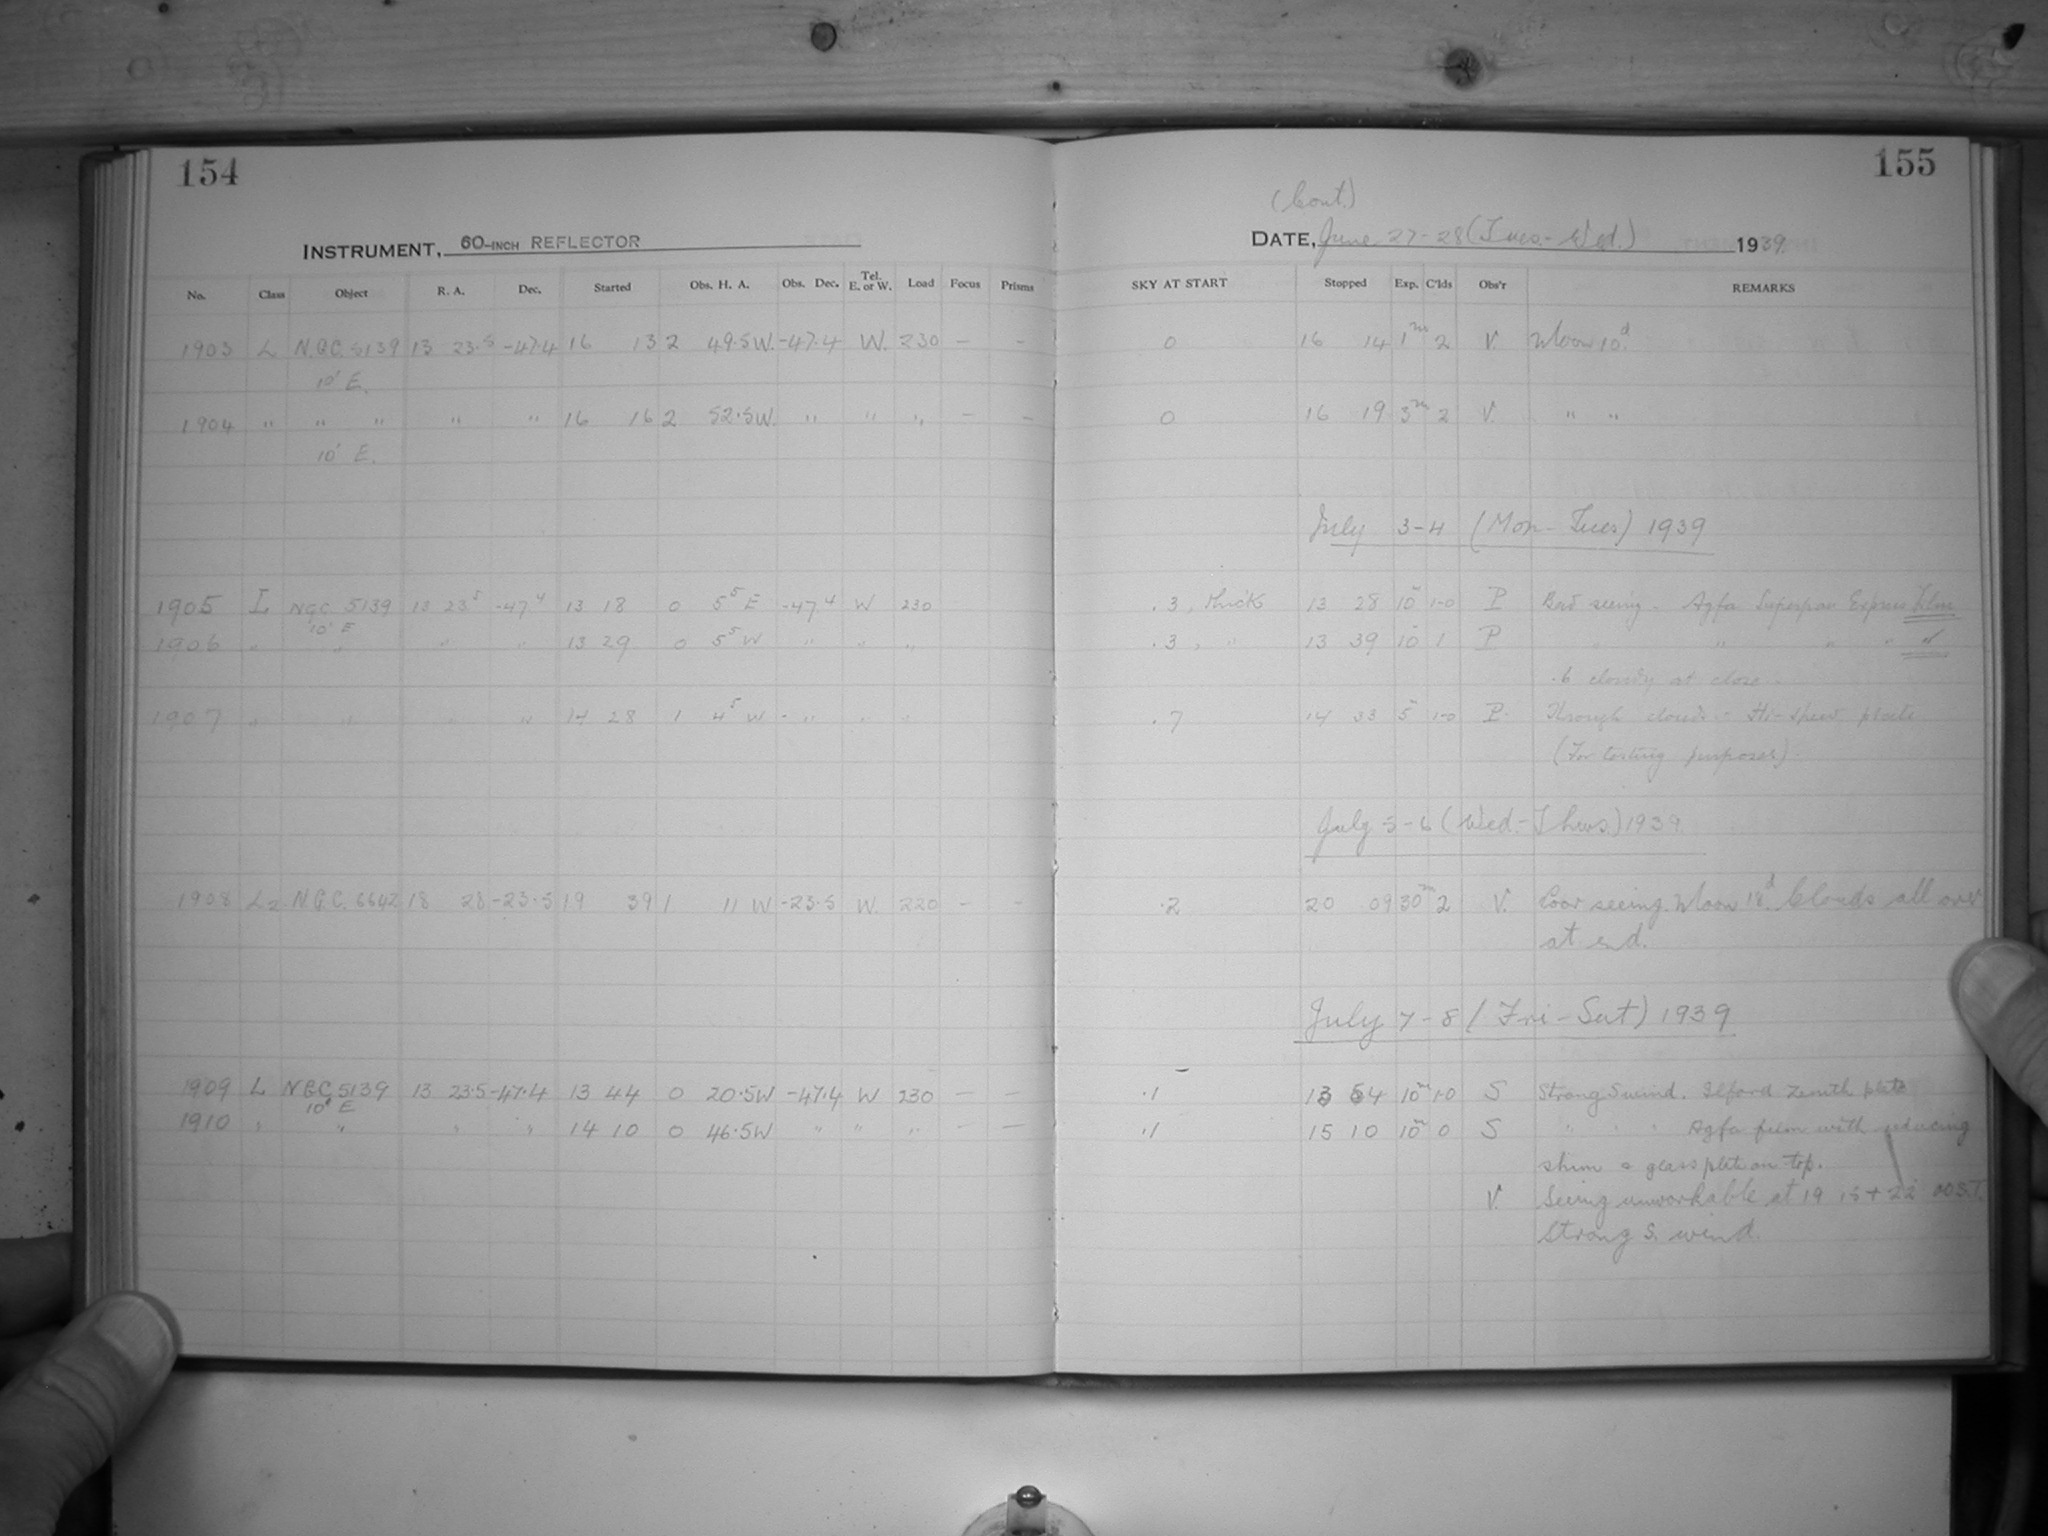 154
155
(Cont.)
INSTRUMENT, 60-INCH REFLECTOR
DATE, June 27-28 (Tues.-Wed.) 1939
No. Class Object R. A. Dec. Started Obs. H. A. Obs. Dec. Tel. E. or W. Load Focus Prisms SKY AT START Stopped Exp. C'lds Obs'r REMARKS
1903 L N.G.C. 5139 13 23.5 -47.4 16 13 2 49.5W. -47.4 W. 230 — - 0 16 14 1m 2 V. Moon 10d.
10' E.
1904 " " " " " 16 16 2 52.5W. " " " - - 0 16 19 3m 2 V. " "
10' E.
July 3-4 (Mon-Tues) 1939
1905 L NGC 5139 13 23 5 -47 4 13 18 0 5 5 E -47 4 W 230 .3, thick 13 28 10 1-0 P Bad seeing - Agfa Superpan Express Film
10' E
1906 " " " " 13 29 0 5 5 W " " " .3, " 13 39 10 1 P " " " "
.6 cloudy at close -
1907 " " " " 14 28 1 4 5 W - " " " .7 14 33 5 1-0 P. Through clouds - Hi-speed plate
(For testing purposes).
July 5-6 (Wed.-Thurs.) 1939
1908 L2 N.G.C. 6642 18 28 -23.5 19 39 1 11 W -23.5 W. 220 - - .2 20 09 30m 2 V. Poor seeing. Moon 18d. Clouds all over
at end.
July 7-8 (Fri-Sat) 1939
1909 L NGC 5139 13 23.5 -47.4 13 44 0 20.5W -47.4 W 230 — — .1 13 54 10m 1-0 S Strong S wind. Ilford Zenith plate
10' E
1910 " " " " 14 10 0 46.5W " " " — — .1 15 10 10m 0 S " " " Agfa film with reducing
shim & glass plate on top.
V. Seeing unworkable at 19 15 + 22 00 S.T.
Strong S. wind.